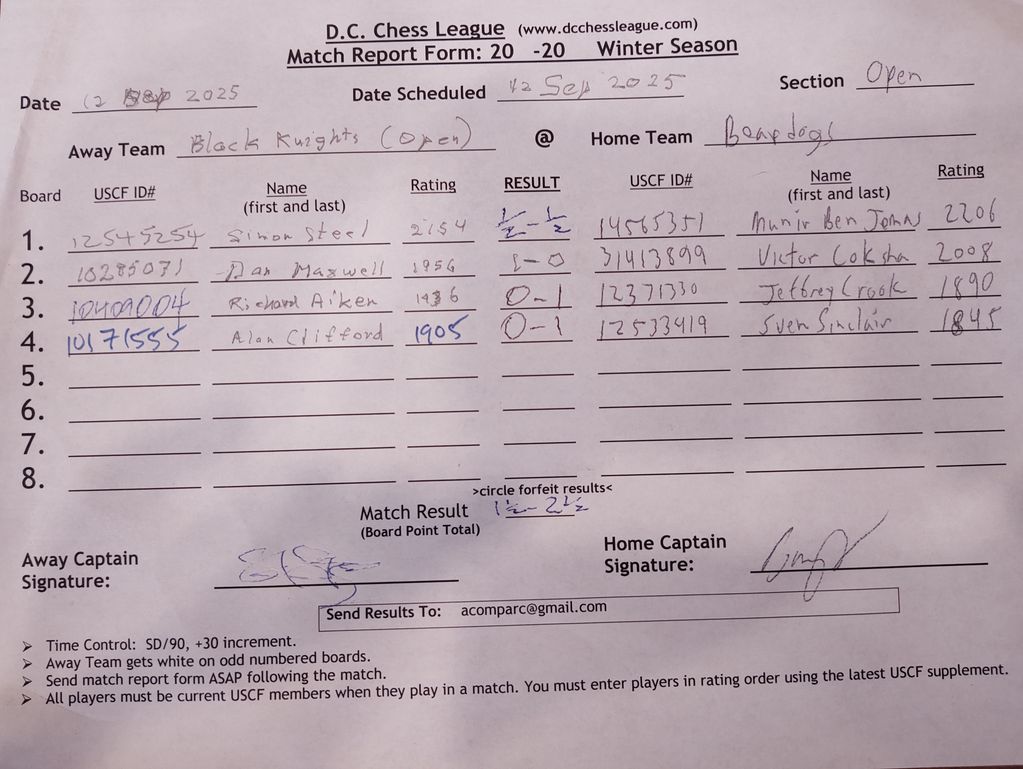 D.C. Chess League (www.dcchessleague.com)
Match Report Form: 20 -20 Winter Season
Date 12 Sep 2025 Date Scheduled 12 Sep 2025 Section Open
Away Team Black Knights (Open) @ Home Team
Board USCF ID# Name (first and last) Rating RESULT USCF ID# Name (first and last) Rating
1. 12545254 Simon Steel 2154 ½-½ 14565351 Munir Ben 2206
2. 10285071 Dan Maxwell 1956 1-0 31413899 Victor 2008
3. 10409004 Richard Aiken 1936 0-1 12371330 Jeffrey Crook 1890
4. 10171555 Alan Clifford 1905 0-1 12533419 Sven Sinclair 1845
5.
6.
7.
8.
>circle forfeit results<
Match Result 1½-2½
(Board Point Total)
Away Captain Signature:
Home Captain Signature:
Send Results To: acomparc@gmail.com
➢ Time Control: SD/90, +30 increment.
➢ Away Team gets white on odd numbered boards.
➢ Send match report form ASAP following the match.
➢ All players must be current USCF members when they play in a match. You must enter players in rating order using the latest USCF supplement.